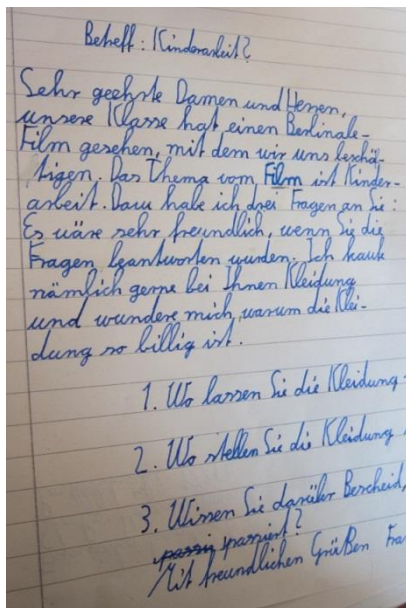 Betreff: Kinderarbeit?
Sehr geehrte Damen und Herren,
unsere Klasse hat einen Berlinale-
Film gesehen, mit dem wir uns beschä-
tigen. Das Thema vom Film ist Kinder-
arbeit. Dazu habe ich drei Fragen an Sie:
Es wäre sehr freundlich, wenn Sie die
Fragen beantworten wurden. Ich kauf
nämlich gerne bei Ihnen Kleidung
und wundere mich, warum die Klei-
dung so billig ist.
1. Wo lassen Sie die Kleidung
2. Wo stellen Sie die Kleidung
3. Wissen Sie darüber Bescheid,
passiert?
Mit freundlichen Grüßen Fra